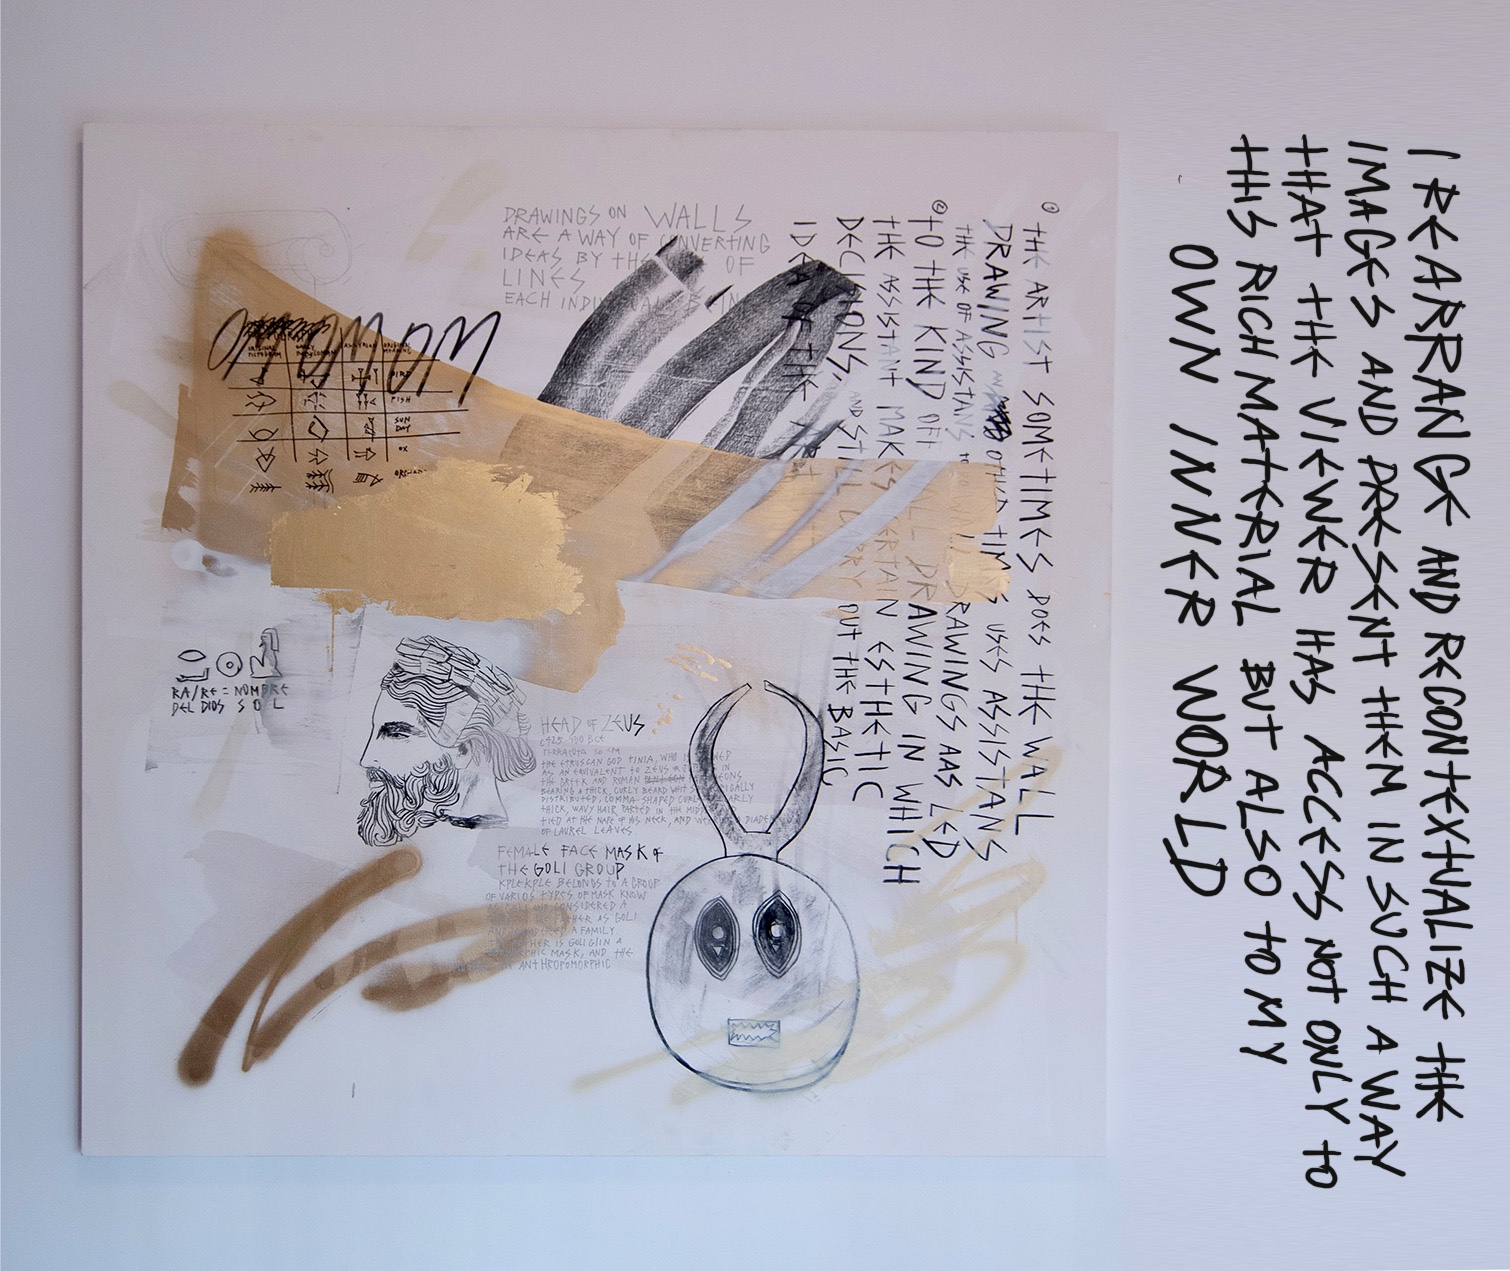 DRAWINGS ON WALLS
ARE A WAY OF CONVERTING
IDEAS BY THE OF
LINES
EACH INDIVIDUAL BEING
ORIGINAL
PICTOGRAM
EARLY
BABYLONIAN
ASSYRIAN
ORIGINAL
MEANING
BIRD
FISH
SUN
DAY
OX
① THE ARTIST SOMETIMES DOES THE WALL
DRAWING AND OTHER TIMES USES ASSISTANS
THE USE OF ASSISTANS TO WALL DRAWINGS AAS LED
② TO THE KIND OFF WALL DRAWING IN WHICH
THE ASSISTANT MAKES CERTAIN ESTHETIC
DECISIONS AND STILL CARRY OUT THE BASIC
IDEA OF THE ART
RA/RE = NOMBRE
DEL DIOS SOL
HEAD OF ZEUS
TERRACOTA
THE ETRUSCAN GOD TINIA, WHO IS
AS AN EQUIVALENT TO ZEUS IN
THE GREEK AND ROMAN
BEARING A THICK, CURLY BEARD WITH
DISTRIBUTED, COMMA-SHAPED CURLS
THICK, WAVY HAIR PARTED IN THE
TIED AT THE NAPE OF HIS NECK, AND DIADEM
OF LAUREL LEAVES
FEMALE FACE MASK OF
THE GOLI GROUP
KPLEKPLE BELONGS TO A GROUP
OF VARIOS TYPES OF MASK KNOW
CONSIDERED A
AS GOLI
A FAMILY
IS GOLI GLIN A
MASK, AND THE
ANTHROPOMORPHIC
I REARRANGE AND RECONTEXTUALIZE THE
IMAGES AND PRESENT THEM IN SUCH A WAY
THAT THE VIEWER HAS ACCESS NOT ONLY TO
THIS RICH MATERIAL BUT ALSO TO MY
OWN INNER WORLD